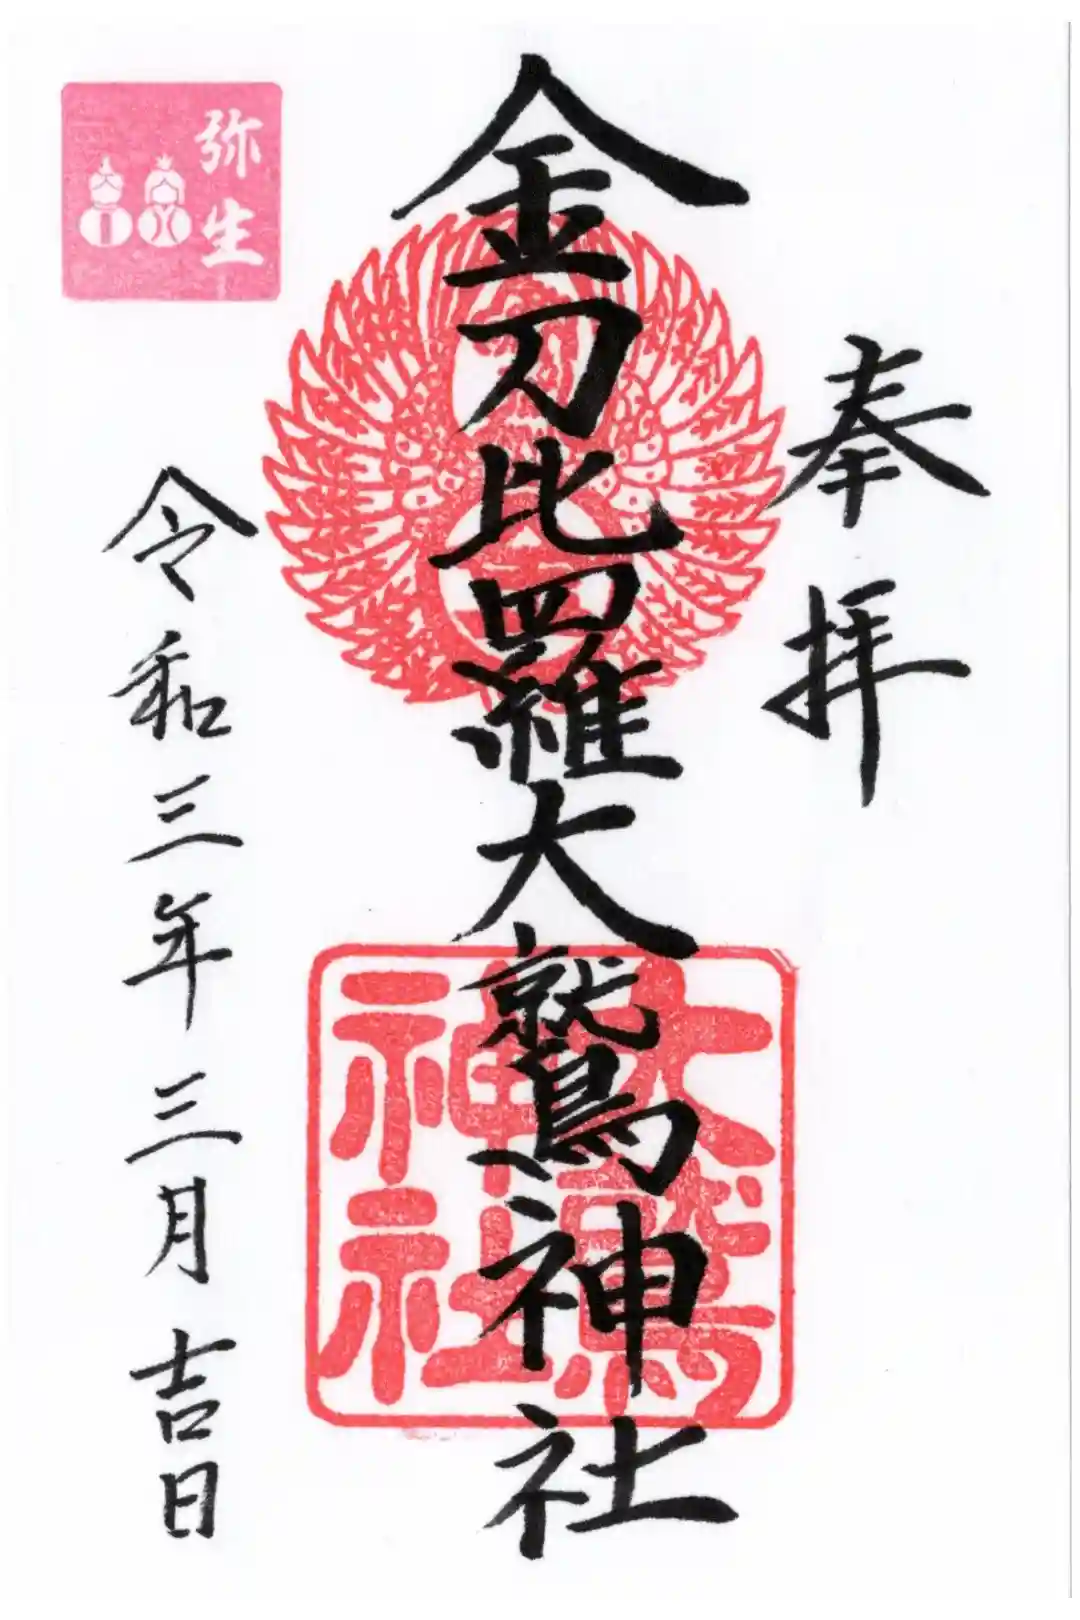 奉拝
金刀比羅大鷲神社
大鷲
神社
令和三年三月吉日
弥生